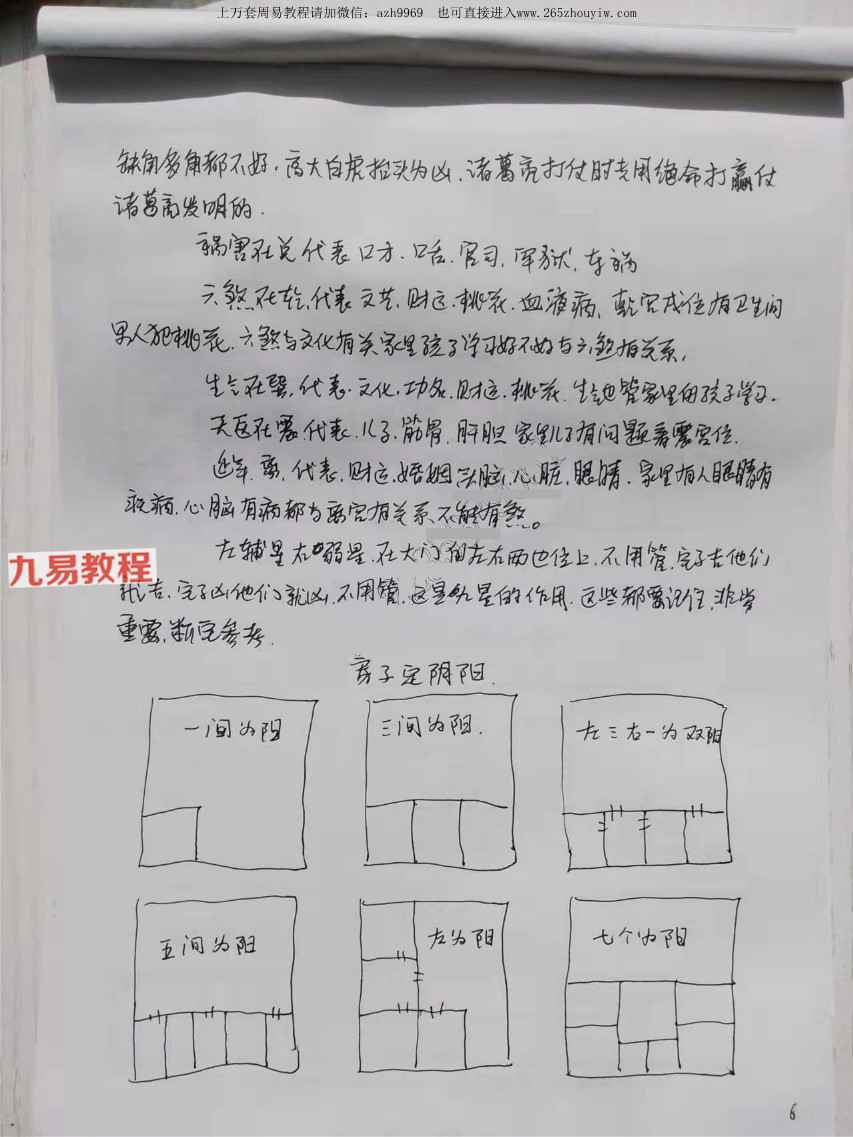 上万套周易教程请加微信：azh9969 也可直接进入www.265zhouyiw.com
缺角多角都不好。高大白虎抬头为凶。诸葛亮打仗时专用绝命打赢仗
诸葛亮发明的.
祸害在兑代表口才.口舌.官司.牢狱.车祸
六煞在乾.代表文艺.财运.桃花.血液病.乾宫戌位有卫生间
男人犯桃花.六煞与文化有关家里孩子学习好不好与六煞有关系.
生气在巽.代表.文化.功名.财运.桃花.生气也管家里的孩子学习.
天医在震.代表.儿子.筋骨.肝胆 家里儿子有问题看震宫位.
延年.离.代表.财运.婚姻 头脑.心脏.眼睛.家里有人眼睛有
疾病.心脑有病都与离宫有关系.不能有煞。
左辅星右弼星.在大门的左右两边位上.不用管.它子吉他们
就吉.它子凶他们就凶.不用管.这是九星的作用.这些都要记住.非常
重要.断宅参考.
九易教程
房子定阴阳.
一间为阳
三间为阳.
左三右一为双阳
五间为阳
左为阳
七个为阳
6